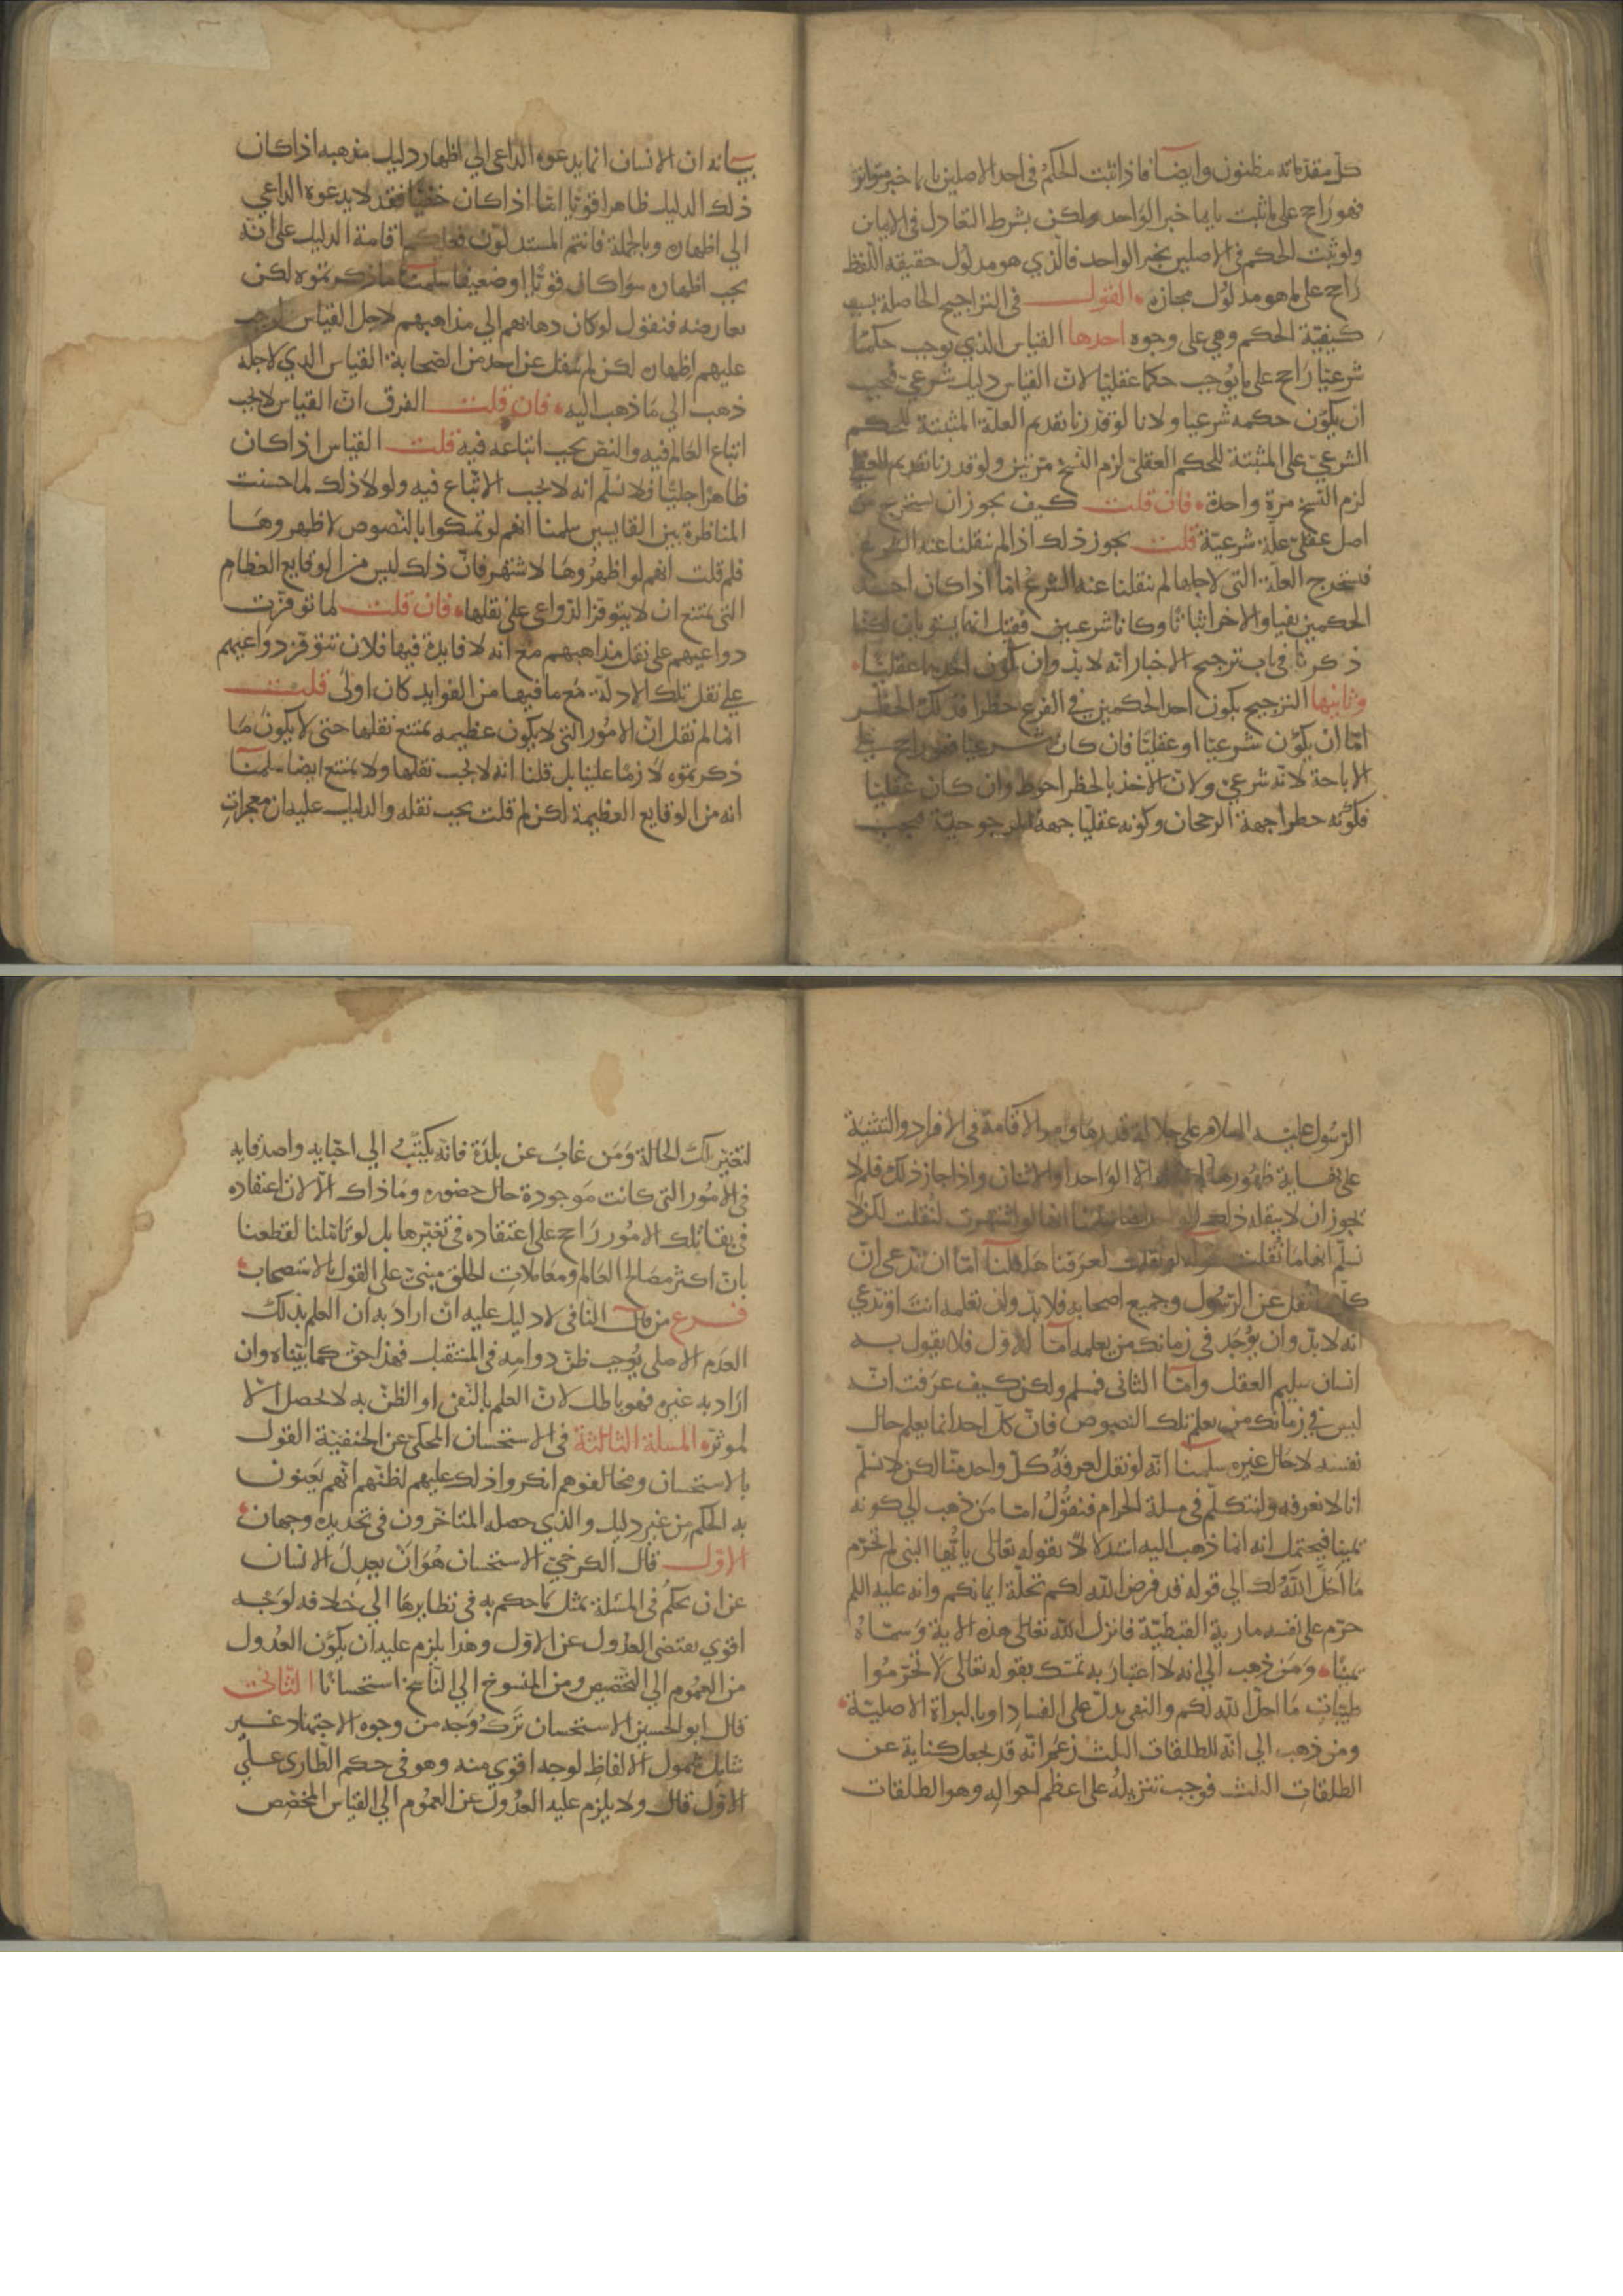 كل مقدماته مظنون وايضا فاذا ثبت الحكم فى احد الاصلين بايما خبر متواتر
فهو راجح على ما ثبت بايما خبر الواحد ولكن بشرط التعادل فى الايمان
ولو ثبت الحكم فى الاصلين بخبر الواحد فالذي هو مدلول حقيقة اللفظ
راجح على ما هو مدلول مجازه القول فى التراجيح الحاصلة بسبب
كيفية الحكم وهي على وجوه احدها القياس الذي يوجب حكما
شرعيا راجح على ما يوجب حكما عقليا لان القياس دليل شرعي فيجب
ان يكون حكمه شرعيا ولانا لو قدرنا تقديم العلة المثبتة للحكم
الشرعي على المثبتة للحكم العقلى لزم النسخ مرتين ولو قدرنا تقديم العقلى
لزم النسخ مرة واحدة فان قلت كيف يجوز ان يستخرج من
اصل عقلى علة شرعية قلت يجوز ذلك اذا لم ينقلنا عنه الشرع
فنستخرج العلة التى لاجلها لم ينقلنا عنه الشرع اما اذا كان احد
الحكمين نفيا والاخر اثباتا وكانا شرعيين فقيل انهما يستويان لكنا
ذكرنا فى باب ترجيح الاخبار انه لا بد وان يكون احدهما عقليا
وثانيها الترجيح بكون احد الحكمين في الفرع حظرا فذلك الحظر
اما ان يكون شرعيا او عقليا فان كان شرعيا فهو راجح على
الاباحة لانه شرعي ولان الاخذ بالحظر احوط وان كان عقليا
فكونه حظرا جهة الرجحان وكونه عقليا جهة المرجوحية فيجب
بيانه ان الانسان انما يدعوه الداعى الي اظهار دليل مذهبه اذا كان
ذلك الدليل ظاهرا قويا اما اذا كان خفيا فقد لا يدعوه الداعي
الي اظهاره وبالجملة فانتم المستدلون فعليكم اقامة الدليل على انه
يجب اظهاره سوا كان قويا او ضعيفا سلمنا ما ذكرتموه لكن
نعارضه فنقول لو كان ذهابهم الي مذاهبهم لاجل القياس لوجب
عليهم اظهاره لكن لم ينقل عن احد من الصحابة القياس الذي لاجله
ذهب الي ما ذهب اليه فان قلت الفرق ان القياس لا يجب
اتباع العالم فيه والنص يجب اتباعه فيه قلت القياس اذا كان
ظاهرا جليا فلا نسلم انه لا يجب الاتباع فيه ولولا ذلك لما حسنت
المناظرة بين القايسين سلمنا انهم لو تمسكوا بالنصوص لاظهروها
فلم قلت انهم لو اظهروها لاشتهر فان ذلك ليس من الوقايع العظام
التى يمتنع ان لا يتوفر الدواعى على نقلها فان قلت لما توفرت
دواعيهم على نقل مذاهبهم مع انه لا فايدة فيها فلان تتوفر دواعيهم
على نقل تلك الادلة مع ما فيها من الفوايد كان اولى قلت
انا لم نقل ان الامور التى لا يكون عظيمه يمتنع نقلها حتى لا يكون ما
ذكرتموه لازما علينا بل قلنا انه لا يجب نقلها ولا يمتنع ايضا سلمنا
انه من الوقايع العظيمة لكن لم قلت يجب نقله والدليل عليه ان معجزات
الرسول عليه السلام على جلالة قدرها وامر الاقامة فى الافراد والتثنية
على نهاية ظهورها الا الواحد او الاثنان واذا جاز ذلك فلم لا
يجوز ان لا ينقله ذلك ايضا سلمنا انها لو اشتهرت لنقلت لكن لا
نسلم انها ما نقلت قوله لو نقلت لعرفناها قلنا اما ان تدعى ان
كلما نقل عن الرسول وجميع اصحابه فلا بد وان تعلمه انت او تدعي
انه لا بد وان يوجد فى زمانك من يعلمه اما الاول فلا يقول به
انسان سليم العقل واما الثانى فمسلم ولكن كيف عرفت انه
ليس في زمانك من يعلم تلك النصوص فان كل احد انما يعلم حال
نفسه لا حال غيره سلمنا انه لو نقل لعرفه كل واحد منا لكن لا نسلم
انا لا نعرفه ولنتكلم فى مسلة الحرام فنقول اما من ذهب الي كونه
يمينا فيحتمل انه انما ذهب اليه استدلالا بقوله تعالى يا ايها النبى لم تحرم
ما احل الله لك الي قوله قد فرض الله لكم تحلة ايمانكم وانه عليه السلم
حرم على نفسه مارية القبطية فانزل الله تعالى هذه الاية وسماه
يمينا ومن ذهب الي انه لا اعتبار به تمسك بقوله تعالى لا تحرموا
طيبات ما احل الله لكم والنهى يدل على الفساد او بالبراة الاصلية
ومن ذهب الي انه للطلقات الثلث زعم انه قد يجعل كناية عن
الطلقات الثلث فوجب تنزيله على اعظم احواله وهو الطلقات
لتغير تلك الحالة ومن غاب عن بلده فانه يكتب الي احبايه واصدقايه
فى الامور التى كانت موجودة حال حضوره وما ذاك الا لان اعتقاده
فى بقا تلك الامور راجح على اعتقاده فى تغيرها بل لو تاملنا لقطعنا
بان اكثر مصالح العالم ومعاملات الخلق مبنى على القول بالاستصحاب
فرع من قال النافى لا دليل عليه ان اراد به ان العلم بذلك
العدم الاصلى يوجب ظن دوامه فى المستقبل فهذا حق كما بيناه وان
اراد به غيره فهو باطل لان العلم بالنفى او الظن به لا يحصل الا
لموثر المسلة الثالثة فى الاستحسان المحكى عن الحنفية القول
بالاستحسان ومخالفوهم انكروا ذلك عليهم لظنهم انهم يعنون
به الحكم من غير دليل والذي حصله المتاخرون فى تحديده وجهان
الاول قال الكرخى الاستحسان هو ان يعدل الانسان
عن ان يحكم فى المسلة بمثل ما حكم به فى نظايرها الي خلافه لوجه
اقوي يقتضى العدول عن الاول وهذا يلزم عليه ان يكون العدول
من العموم الي التخصيص ومن المنسوخ الي الناسخ استحسانا الثانى
قال ابو الحسين الاستحسان ترك وجه من وجوه الاجتهاد غير
شامل شمول الالفاظ لوجه اقوي منه وهو فى حكم الطارى على
الاول قال ولا يلزم عليه العدول عن العموم الي القياس المخصص